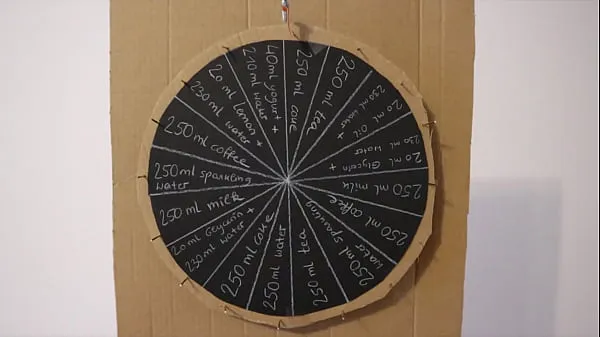 250 ml coke
250 ml tea
250 ml water +
20 ml Oil
230 ml water
20 ml Glycerin +
250 ml milk
250 ml coffee
250 ml sparkling
water
250 ml tea
250 ml water
250 ml coke
230 ml water +
20 ml Glycerin
250 ml milk
250 ml sparkling
water
250 ml coffee
230 ml water
20 ml lemon +
210 ml water
40ml yogurt +